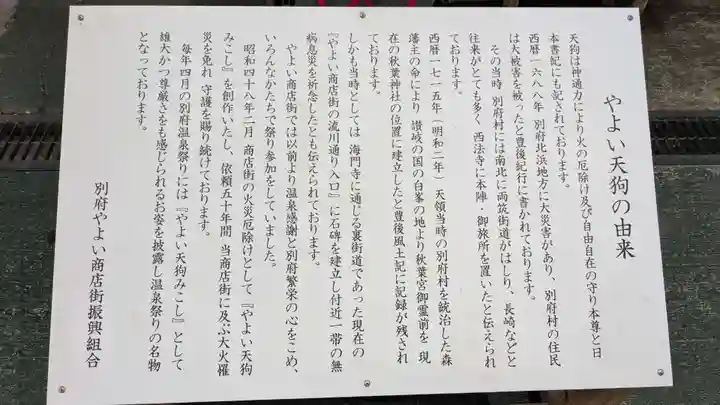 やよい天狗の由来
天狗は神通力により火の厄除け及び自由自在の守り本尊と日
本書紀にも記されております。
西暦一六八八年 別府北浜地方に大災害があり、別府村の住民
は大被害を被ったと豊後紀行に書かれております。
その当時 別府村には南北に両筑街道がはしり、長崎などと
往来がとても多く 西法寺に本陣・御旅所を置いたと伝えられ
ております。
西暦一七一五年（明和二年）天領当時の別府村を統治した森
藩主の命により 讃岐の国の白峯の地より秋葉宮御霊前を 現
在の秋葉神社の位置に建立したと豊後風土記に記録が残され
ております。
しかも当時としては 海門寺に通じる裏街道であった現在の
『やよい商店街の流川通り入口』に石碑を建立し付近一帯の無
病息災を祈念したとも伝えられております。
やよい商店街では以前より温泉感謝と別府繁栄の心をこめ、
いろんなかたちで祭り参加をしていました。
昭和四十八年二月 商店街の火災厄除けとして『やよい天狗
みこし』を創作いたし、依頼五十年間 当商店街に及ぶ大火罹
災を免れ 守護を賜り続けております。
毎年四月の別府温泉祭りには『やよい天狗みこし』として
雄大かつ尊厳さをも感じられるお姿を披露し温泉祭りの名物
となっております。
別府やよい商店街振興組合